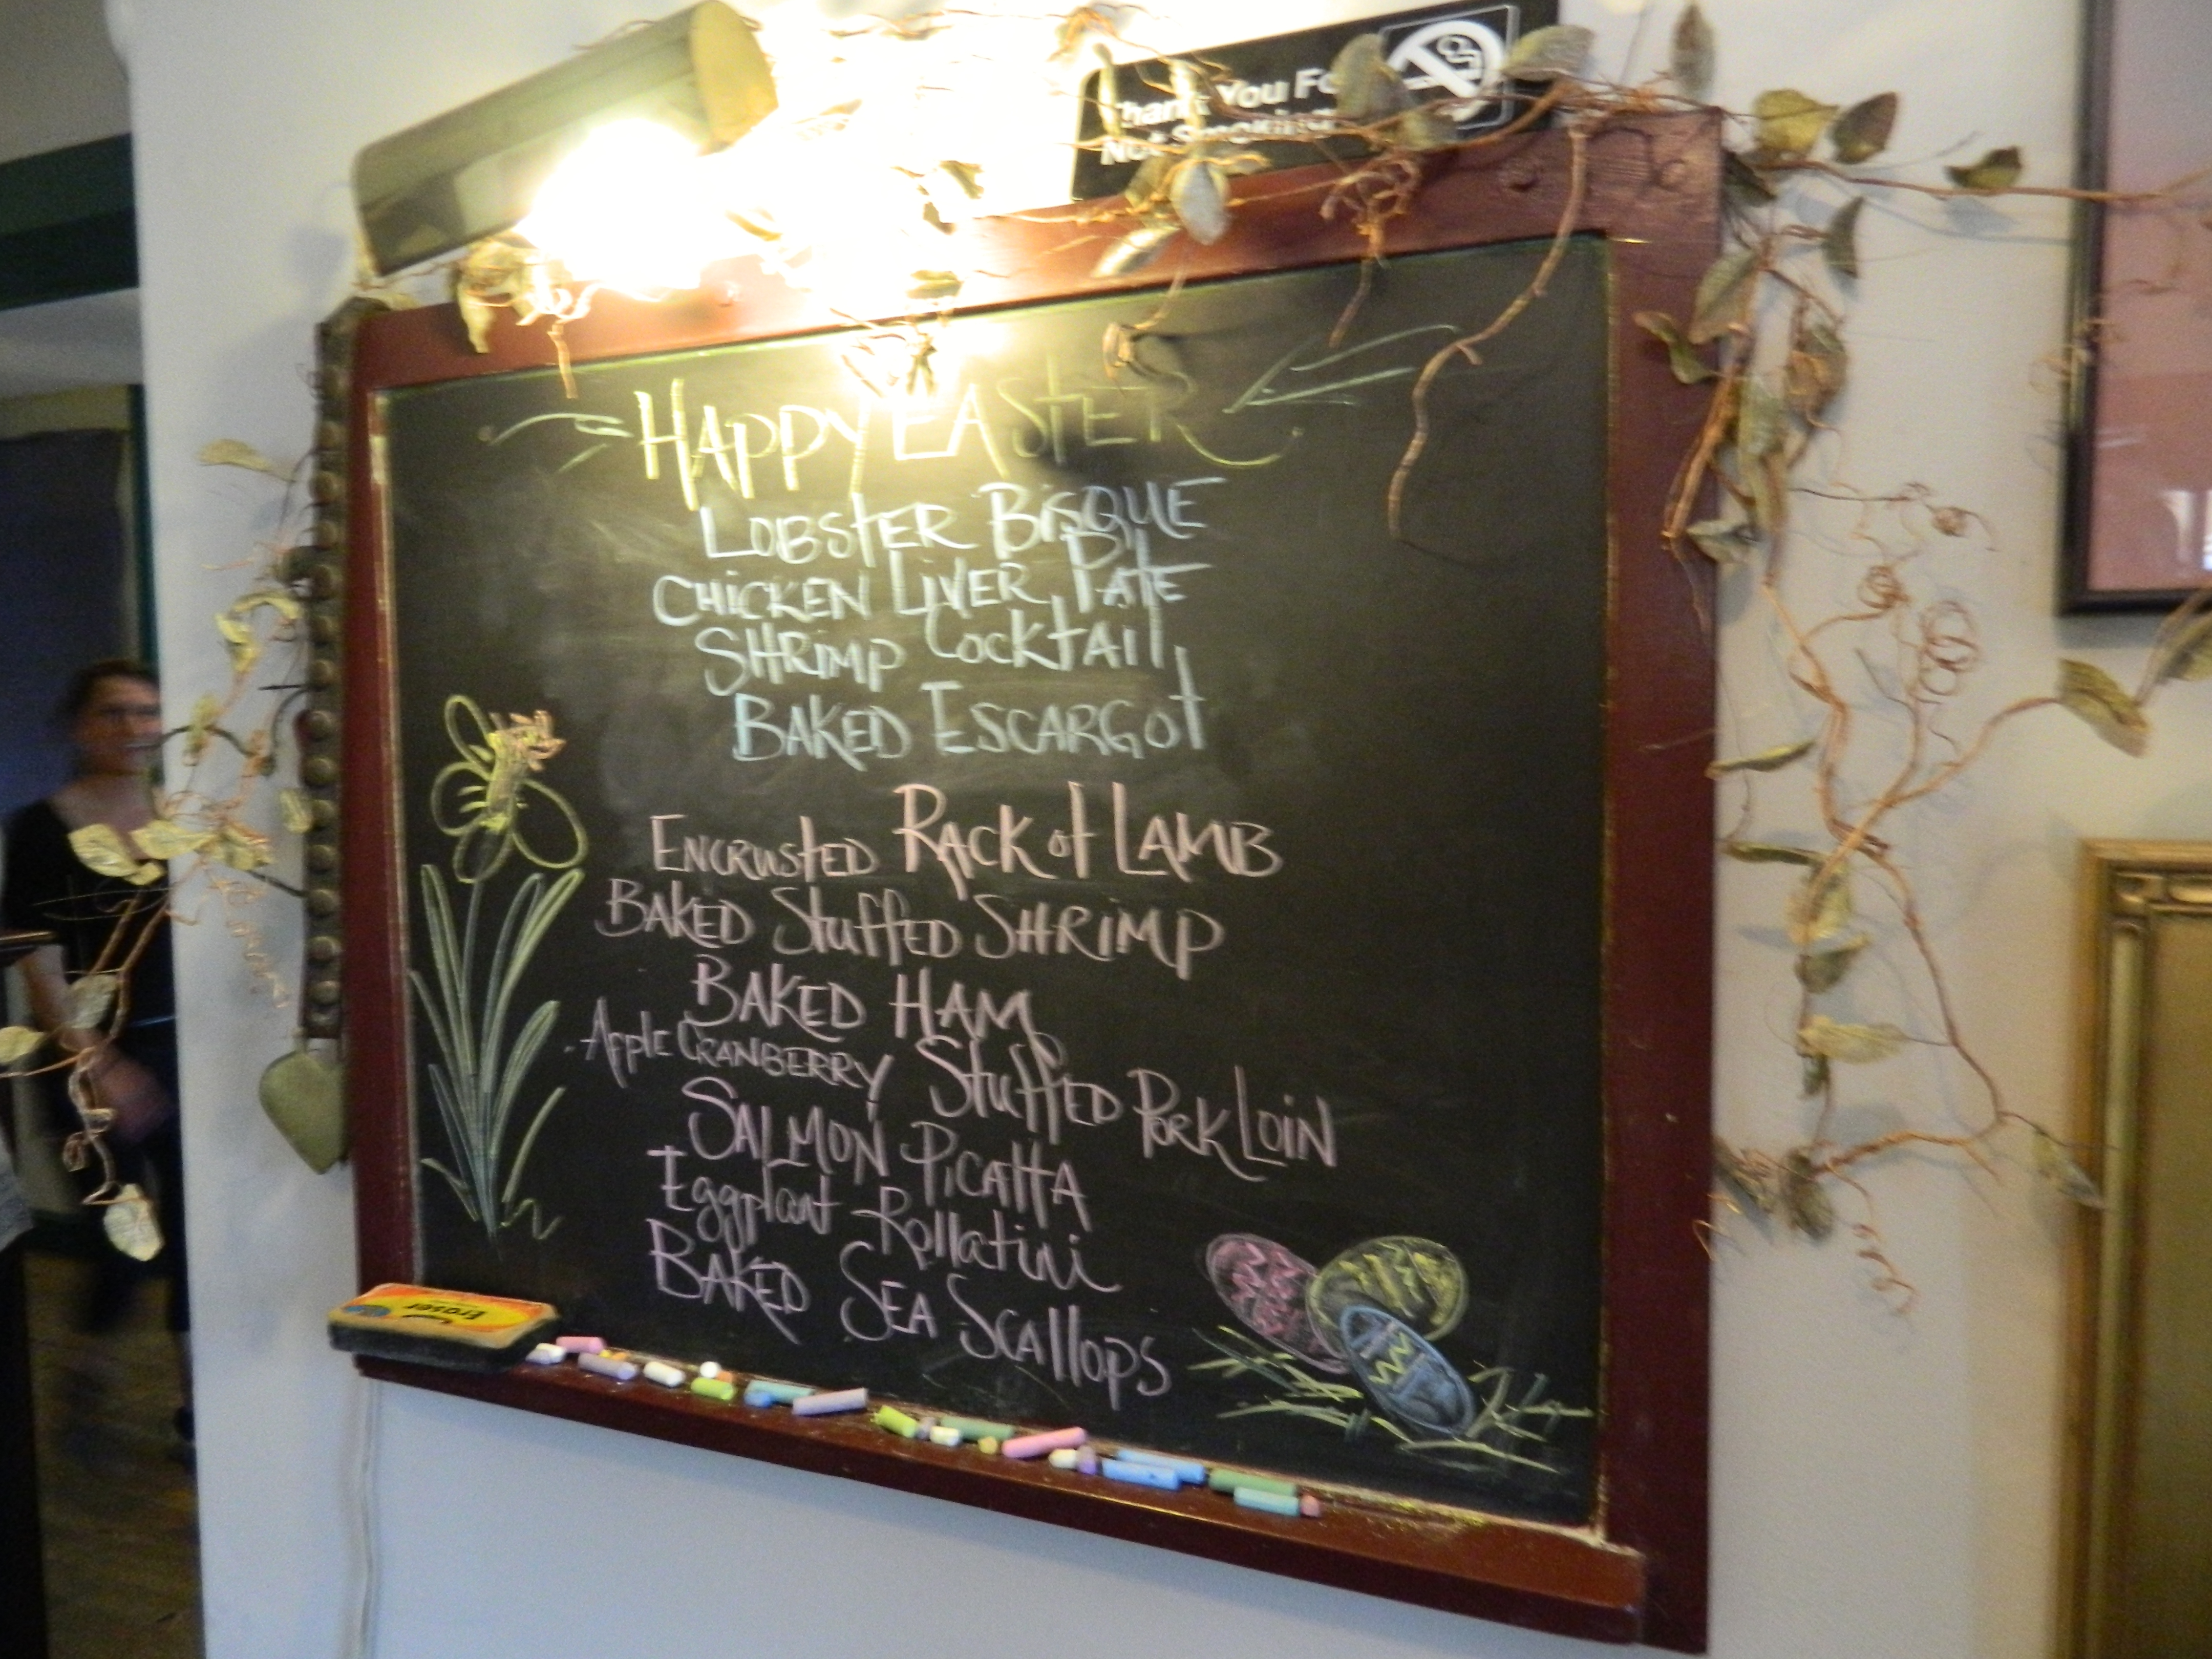 Thank You For
Not Smoking
HAPPY EASTER
LOBSTER BISQUE
CHICKEN LIVER PATE
SHRIMP COCKTAIL
BAKED ESCARGOT
ENCRUSTED RACK of LAMB
BAKED Stuffed SHRIMP
BAKED HAM
Apple CRANBERRY Stuffed Pork Loin
SALMON Picatta
Eggplant Rollatini
BAKED SEA Scallops
Eraser